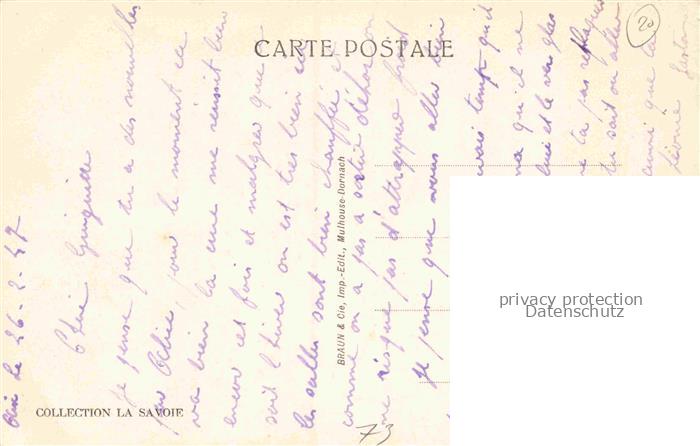 CARTE POSTALE
le 26-2-47
Chère
Je pense que tu a des nouvelles
par pour le moment ca
va bien la cure me reussit bien
encor cet fois et malgrer que
soit l'hiver on est tres bien
les salles sont bien chauffée
comme on a pas a sortir déhors on
ne risque pas d'attrapper froid
Je pense que vous aller bien
temps qu'il
qu'il ne
et le verglas
ta pas
tu sait ou aller
que
BRAUN & Cie, Imp.-Edit., Mulhouse-Dornach
COLLECTION LA SAVOIE
20
73
privacy protection
Datenschutz